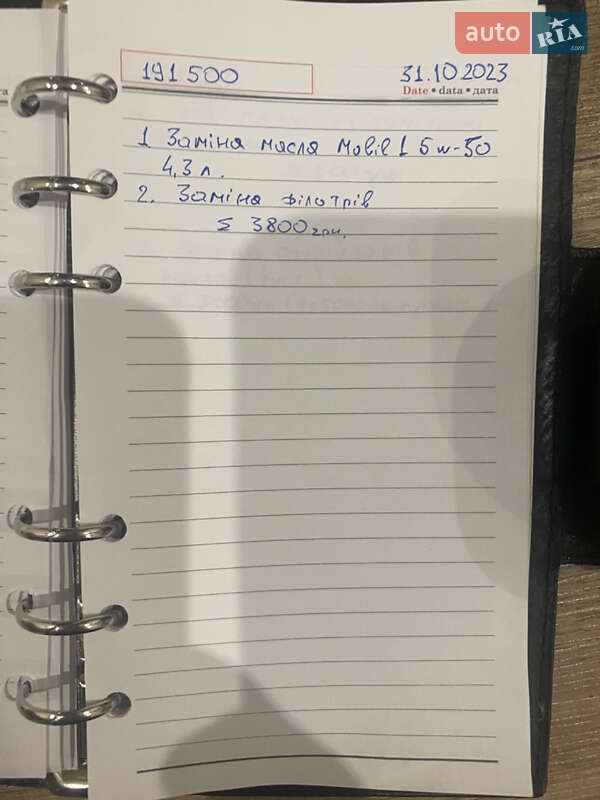 auto RIA.com
191 500 31.10 2023
Date • data • дата
1 Заміна масла Mobil 1 5w-50
4,3 л.
2. Заміна філтрів
Σ 3800 грн.